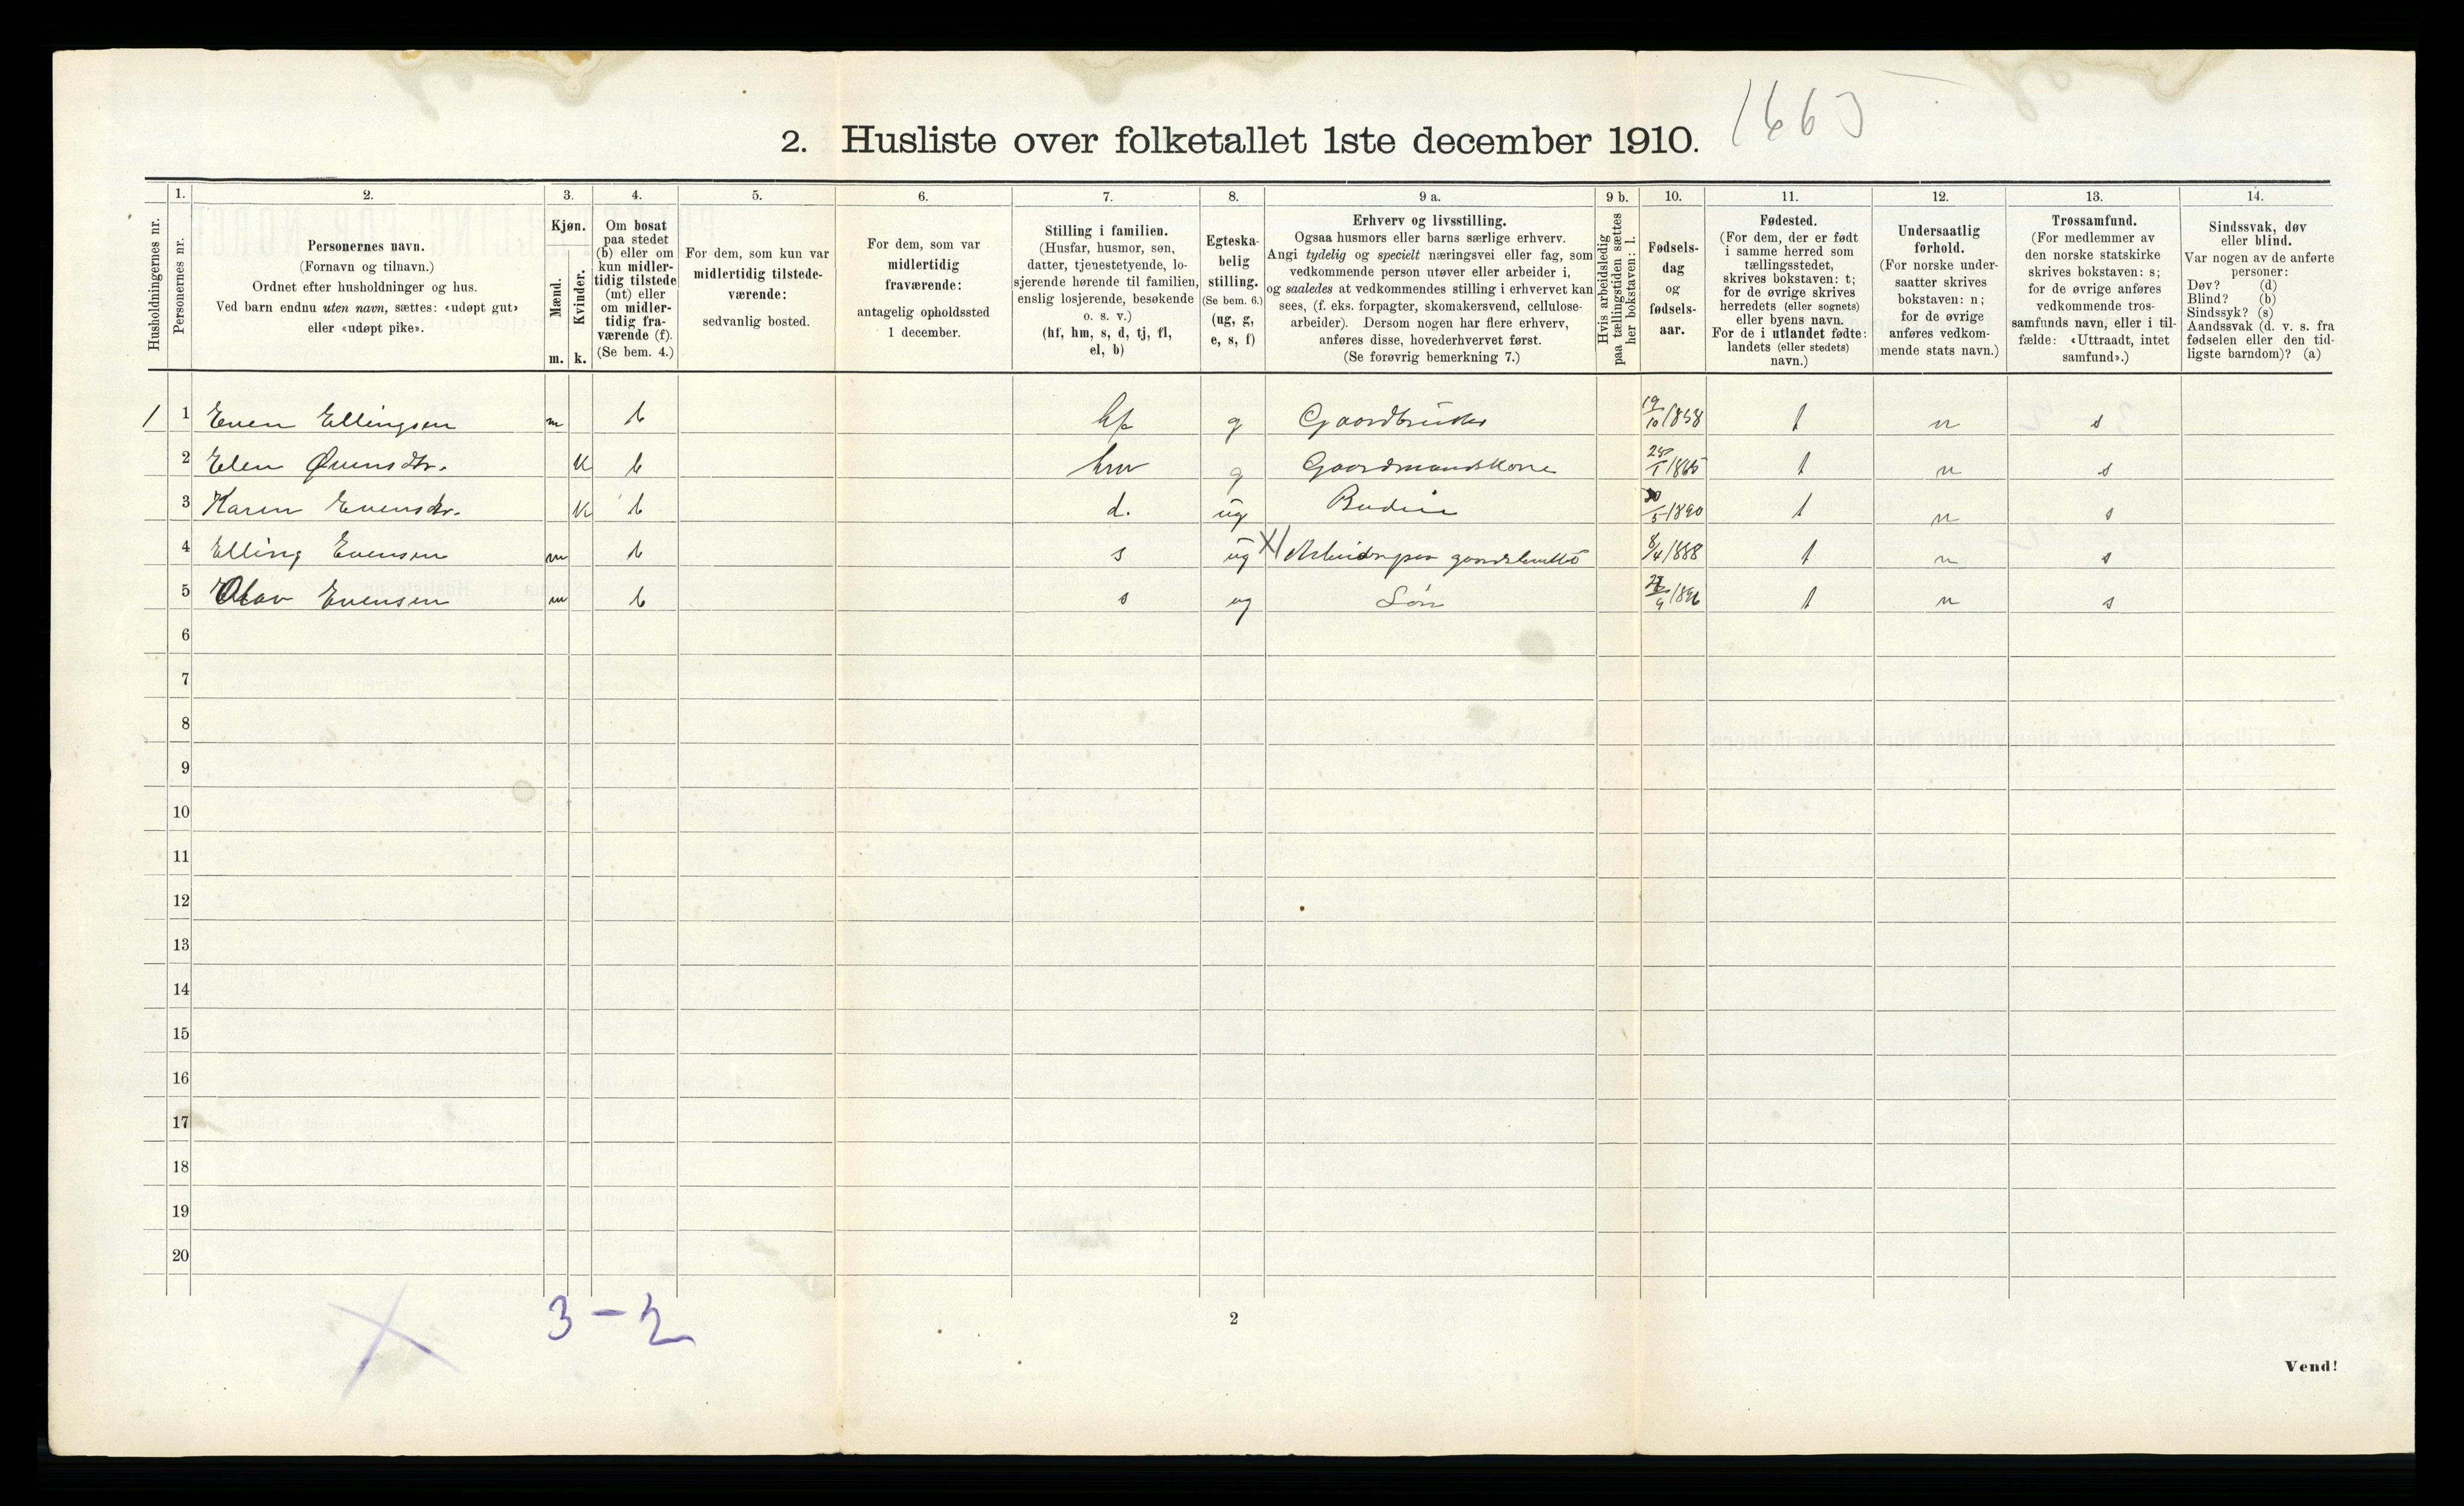 2. Husliste over folketallet 1ste december 1910.
1. 2. 3. 4. 5. 6. 7. 8. 9 a. 9 b. 10. 11. 12. 13. 14.
Husholdningernes nr.
Personernes nr.
Personernes navn.
(Fornavn og tilnavn.)
Ordnet efter husholdninger og hus.
Ved barn endnu uten navn, sættes: «udøpt gut»
eller «udøpt pike».
Kjøn.
Mænd.
Kvinder.
m. k.
Om bosat
paa stedet
(b) eller om
kun midler-
tidig tilstede
(mt) eller
om midler-
tidig fra-
værende (f).
(Se bem. 4.)
For dem, som kun var
midlertidig tilstede-
værende:
sedvanlig bosted.
For dem, som var
midlertidig
fraværende:
antagelig opholdssted
1 december.
Stilling i familien.
(Husfar, husmor, søn,
datter, tjenestetyende, lo-
sjerende hørende til familien,
enslig losjerende, besøkende
o. s. v.)
(hf, hm, s, d, tj, fl,
el, b)
Egteska-
belig
stilling.
(Se bem. 6.)
(ug, g,
e, s, f)
Erhverv og livsstilling.
Ogsaa husmors eller barns særlige erhverv.
Angi tydelig og specielt næringsvei eller fag, som
vedkommende person utøver eller arbeider i,
og saaledes at vedkommendes stilling i erhvervet kan
sees, (f. eks. forpagter, skomakersvend, cellulose-
arbeider). Dersom nogen har flere erhverv,
anføres disse, hovederhvervet først.
(Se forøvrig bemerkning 7.)
Hvis arbeidsledig
paa tællingstiden sættes
her bokstaven: l.
Fødsels-
dag
og
fødsels-
aar.
Fødested.
(For dem, der er født
i samme herred som
tællingsstedet,
skrives bokstaven: t;
for de øvrige skrives
herredets (eller sognets)
eller byens navn.
For de i utlandet fødte:
landets (eller stedets)
navn.)
Undersaatlig
forhold.
(For norske under-
saatter skrives
bokstaven: n;
for de øvrige
anføres vedkom-
mende stats navn.)
Trossamfund.
(For medlemmer av
den norske statskirke
skrives bokstaven: s;
for de øvrige anføres
vedkommende tros-
samfunds navn, eller i til-
fælde: «Uttraadt, intet
samfund».)
Sindssvak, døv
eller blind.
Var nogen av de anførte
personer:
Døv? (d)
Blind? (b)
Sindssyk? (s)
Aandssvak (d. v. s. fra
fødselen eller den tid-
ligste barndom)? (a)
1 1 Even Ellingsen m b hf g Gaardbruker 19/10 1858 t n s
2 Elen Øvensdtr. k b hm g Gaardmandskone 1865 t n s
3 Karen Evensdtr. k b d. ug Budeie 5 1890 t n s
4 Elling Evensen m b s ug X Arbeider paa gaardsbruk 8/4 1888 t n s
5 Olav Evensen m b s ug Søn 9 1896 t n s
6
7
8
9
10
11
12
13
14
15
16
17
18
19
20
3 - 2
2
Vend!